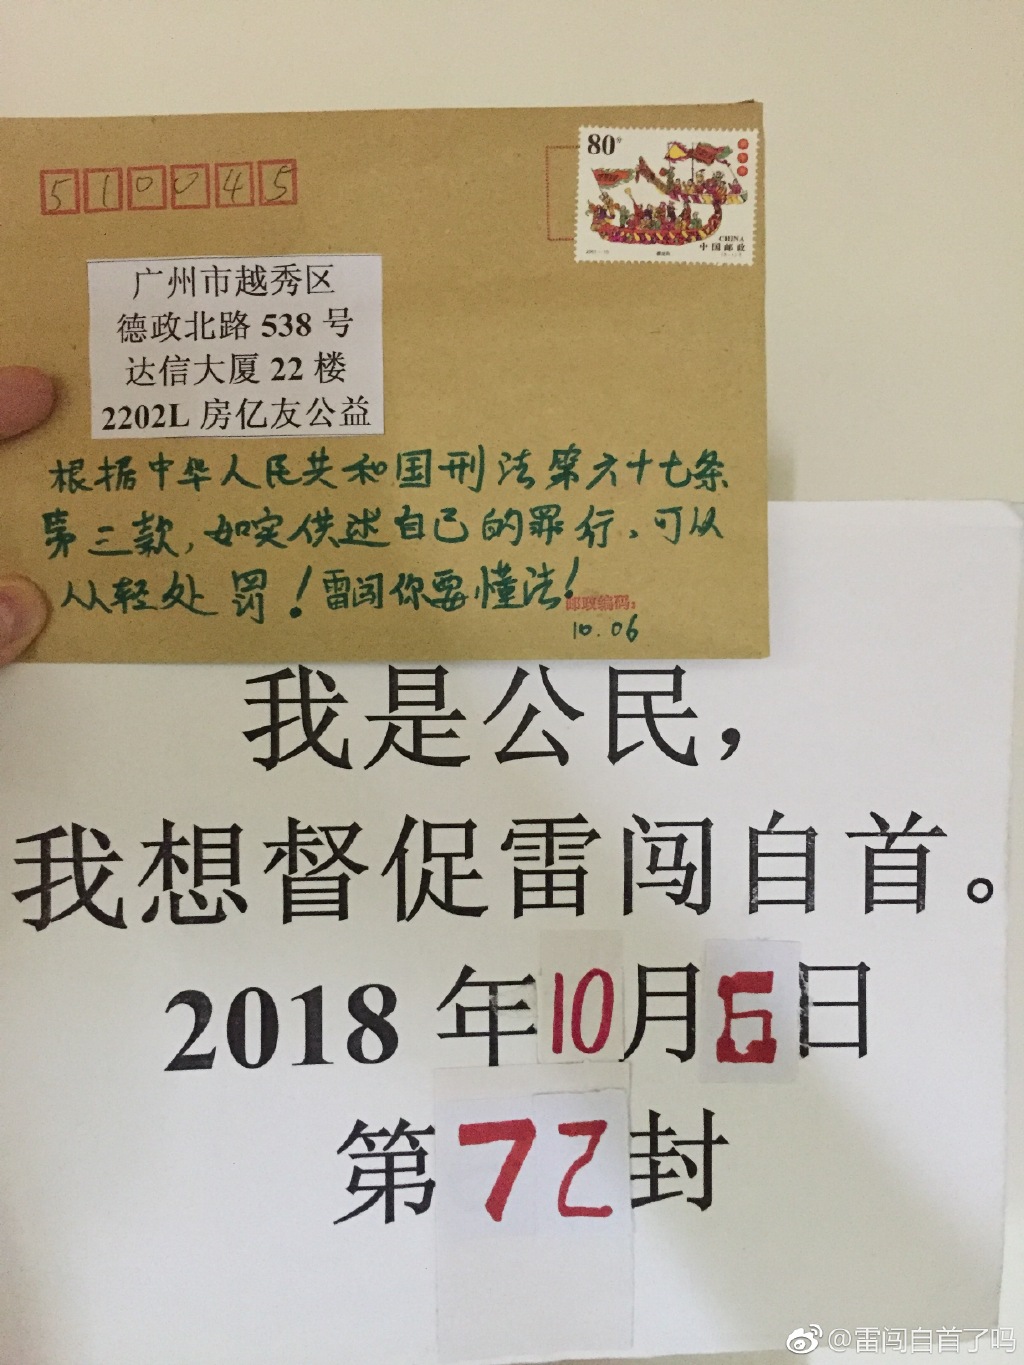 510045
80分
CHINA
中国邮政
广州市越秀区
德政北路 538 号
达信大厦 22 楼
2202L 房亿友公益
根据中华人民共和国刑法第六十七条
第三款,如实供述自己的罪行,可以
从轻处罚!雷闯你要懂法!
邮政编码:
10.06
我是公民,
我想督促雷闯自首。
2018 年10月6日
第72封
@雷闯自首了吗